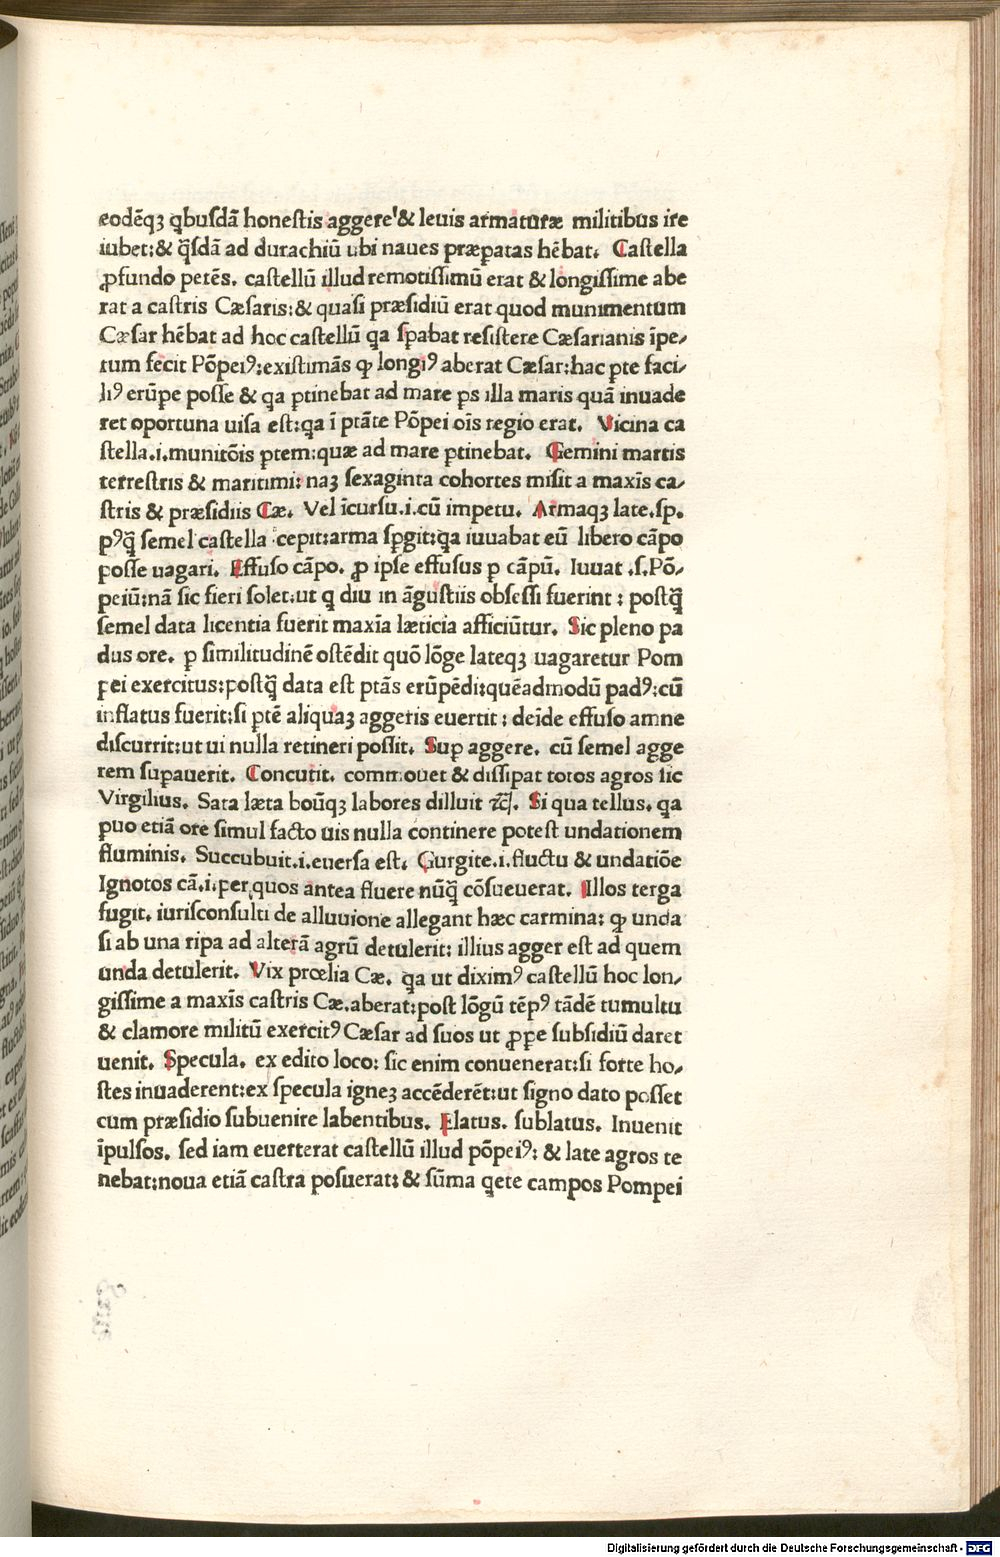 eodēqꝫ qbusdā honeſtis aggere & leuis armaturæ militibus ire
iubet:& q̄ſdā ad durachiū ubi naues præꝑatas hēbat. Caſtella
ꝓfundo petēs. caſtellū illud remotiſſimū erat & longiſſime abe
rat a caſtris Cæſaris:& quaſi præſidiū erat quod munimentum
Cæſar hēbat ad hoc caſtellū qa ſꝑabat reſiſtere Cæſarianis īpe⸗
tum fecit Pōpeiꝰ:exiſtimās ꝙ longiꝰ aberat Cæſar:hac ꝑte faci⸗
liꝰ erūpe poſſe & qa ꝑtinebat ad mare ps illa maris quā inuade
ret oportuna uiſa eſt:qa ī ptāte Pōpei oīs regio erat. Vicina ca
ſtella.i.munitōis ꝑtem:quæ ad mare ꝑtinebat. Gemini martis
terreſtris & maritimi: naꝫ ſexaginta cohortes miſit a maxīs ca⸗
ſtris & præſidiis Cæ. Vel īcurſu.i.cū impetu. Armaqꝫ late.ſp.
pꝰq̄ ſemel caſtella cepit:arma ſꝑgit:qa iuuabat eū libero cāpo
poſſe uagari. Effuſo cāpo. ꝓ ipſe effuſus ꝑ cāpū. Iuuat .ſ.Pō⸗
peiū:nā ſic fieri ſolet:ut q diu in āguſtiis obſeſſi fuerint : poſtq̄
ſemel data licentia fuerit maxīa læticia afficiūtur. Sic pleno pa
dus ore. ꝑ ſimilitudinē oſtēdit quō lōge lateqꝫ uagaretur Pom
pei exercitus:poſtq̄ data eſt ptās erūpēdi:quēadmodū padꝰ:cū
inflatus fuerit:ſi ꝑtē aliquaꝫ aggeris euertit : deīde effuſo amne
diſcurrit:ut ui nulla retineri poſſit. Suꝑ aggere. cū ſemel agge
rem ſuꝑauerit. Concutit. commouet & diſſipat totos agros ſic
Virgilius. Sata læta boūqꝫ labores dilluit ⁊cͣ. Si qua tellus. qa
puo etiā ore ſimul facto uis nulla continere poteſt undationem
fluminis. Succubuit.i.euerſa eſt. Gurgite.i.fluctu & undatiōe
Ignotos cā.i.per quos antea fluere nūq̄ cōſueuerat. Illos terga
fugit. iuriſconſulti de alluuione allegant hæc carmina: ꝙ unda
ſi ab una ripa ad alterā agrū detulerit: illius agger eſt ad quem
unda detulerit. Vix prœlia Cæ. qa ut diximꝰ caſtellū hoc lon⸗
giſſime a maxīs caſtris Cæ.aberat:poſt lōgū tēpꝰ tādē tumultu
& clamore militū exercitꝰ Cæſar ad ſuos ut ꝓpe ſubſidiū daret
uenit. Specula. ex edito loco: ſic enim conuenerat:ſi forte ho⸗
ſtes inuaderent:ex ſpecula igneꝫ accēderēt:ut ſigno dato poſſet
cum præſidio ſubuenire labentibus. Elatus. ſublatus. Inuenit
īpulſos. ſed iam euerterat caſtellū illud pōpeiꝰ: & late agros te
nebat:noua etiā caſtra poſuerat: & ſūma qete campos Pompei
Digitalisierung gefördert durch die Deutsche Forschungsgemeinschaft - DFG